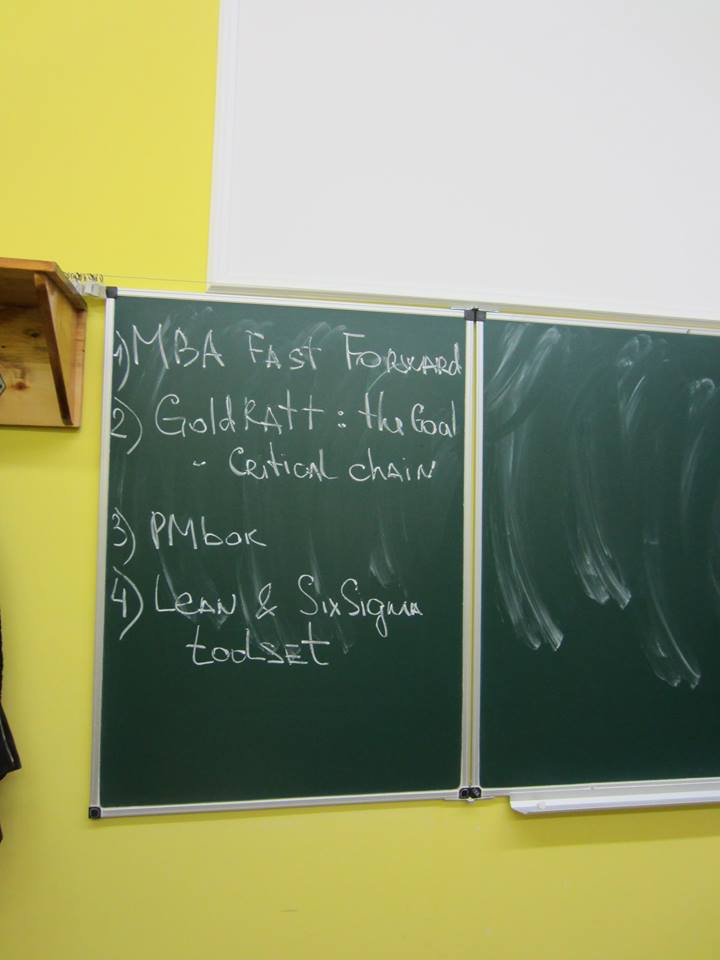 1) MBA Fast Forward
2) Goldratt: the Goal
- Critical chain
3) PMbok
4) Lean & SixSigma
toolset